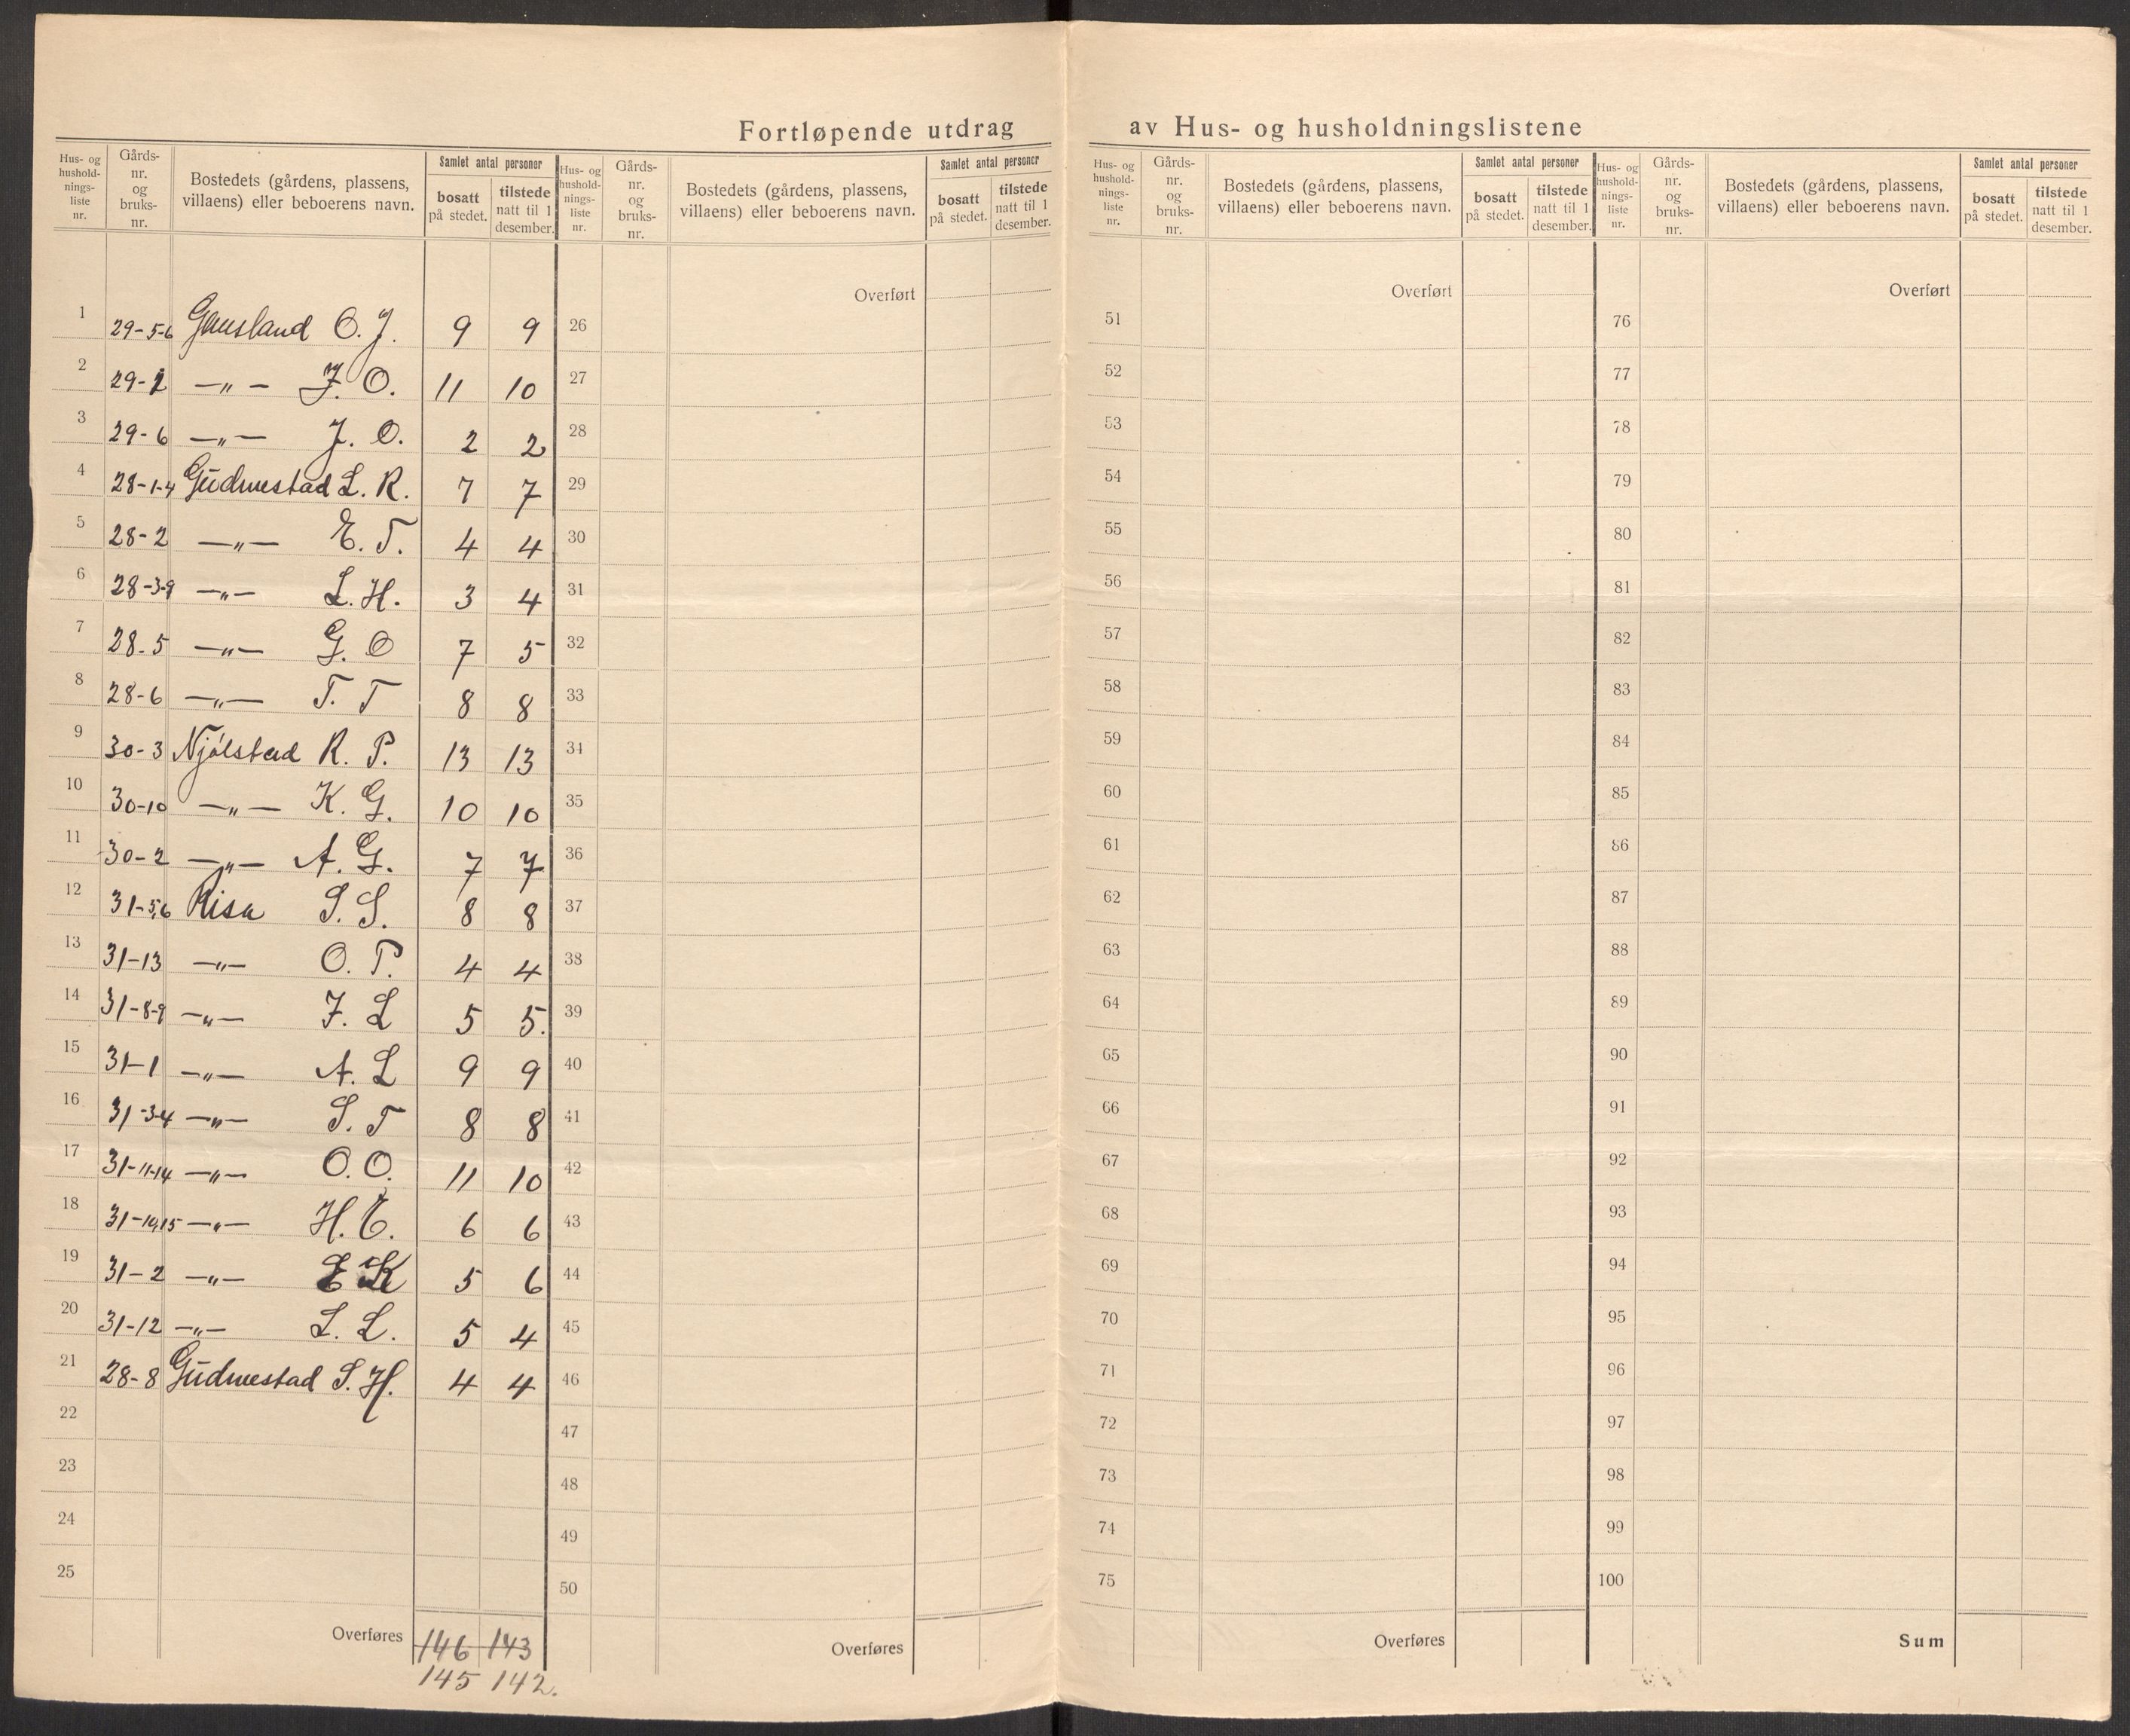 Fortløpende utdrag av Hus- og husholdningslistene
Hus- og hushold-nings-liste nr. Gårds-nr. og bruks-nr. Bostedets (gårdens, plassens, villaens) eller beboerens navn. Samlet antal personer bosatt på stedet. tilstede natt til 1 desember.
1 29-5-6 Gausland O. J. 9 9
2 29-1 -"- J. O. 11 10
3 29-6 -"- J. O. 2 2
4 28-1-4 Gudmestad L. R. 7 7
5 28-2 -"- E. T. 4 4
6 28-3-9 -"- L. H. 3 4
7 28-5 -"- G. O 7 5
8 28-6 -"- T. T 8 8
9 30-3 Njålstad R. P. 13 13
10 30-10 -"- K. G. 10 10
11 30-2 -"- A. G. 7 7
12 31-5,6 Risa S. S. 8 8
13 31-13 -"- O. P. 4 4
14 31-8-9 -"- J. L 5 5.
15 31-1 -"- A. L 9 9
16 31-3-4 -"- S. T 8 8
17 31-11-14 -"- O. O. 11 10
18 31-10,15 -"- H. E. 6 6
19 31-2 -"- E K 5 6
20 31-12 -"- L. L. 5 4
21 28-8 Gudmestad S. H. 4 4
22
23
24
25
Overføres 146 143
145 142.
Hus- og hushold-nings-liste nr. Gårds-nr. og bruks-nr. Bostedets (gårdens, plassens, villaens) eller beboerens navn. Samlet antal personer bosatt på stedet. tilstede natt til 1 desember.
Overført
26
27
28
29
30
31
32
33
34
35
36
37
38
39
40
41
42
43
44
45
46
47
48
49
50
Overføres
Hus- og hushold-nings-liste nr. Gårds-nr. og bruks-nr. Bostedets (gårdens, plassens, villaens) eller beboerens navn. Samlet antal personer bosatt på stedet. tilstede natt til 1 desember.
Overført
51
52
53
54
55
56
57
58
59
60
61
62
63
64
65
66
67
68
69
70
71
72
73
74
75
Overføres
Hus- og hushold-nings-liste nr. Gårds-nr. og bruks-nr. Bostedets (gårdens, plassens, villaens) eller beboerens navn. Samlet antal personer bosatt på stedet. tilstede natt til 1 desember.
Overført
76
77
78
79
80
81
82
83
84
85
86
87
88
89
90
91
92
93
94
95
96
97
98
99
100
Sum